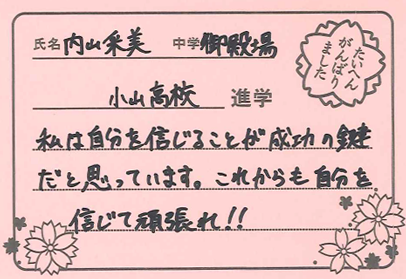 氏名 内山采美 中学 御殿場
たいへん
がんばり
ました
小山高校 進学
私は自分を信じることが成功の鍵
だと思っています。これからも自分を
信じて頑張れ!!